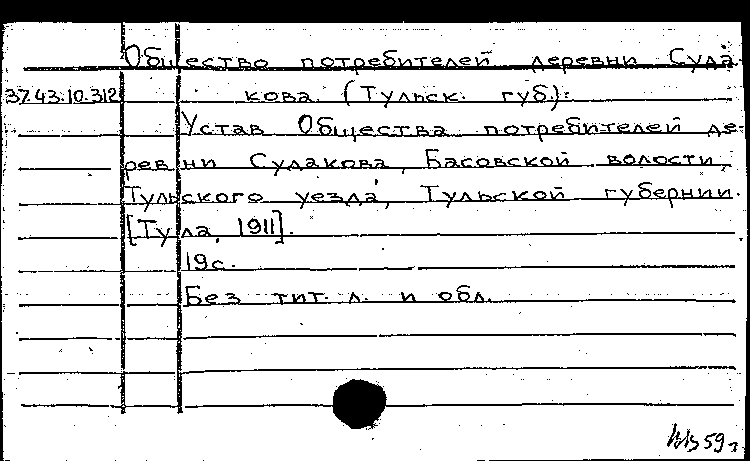 Общество потребителей деревни Суда-
37.43.10.312 кова (Тульск. губ.).
Устав Общества потребителей де-
ревни Судакова, Басовской волости,
Тульского уезда, Тульской губернии.
[Тула, 1911].
19с.
Без тит. л. и обл.
59 г